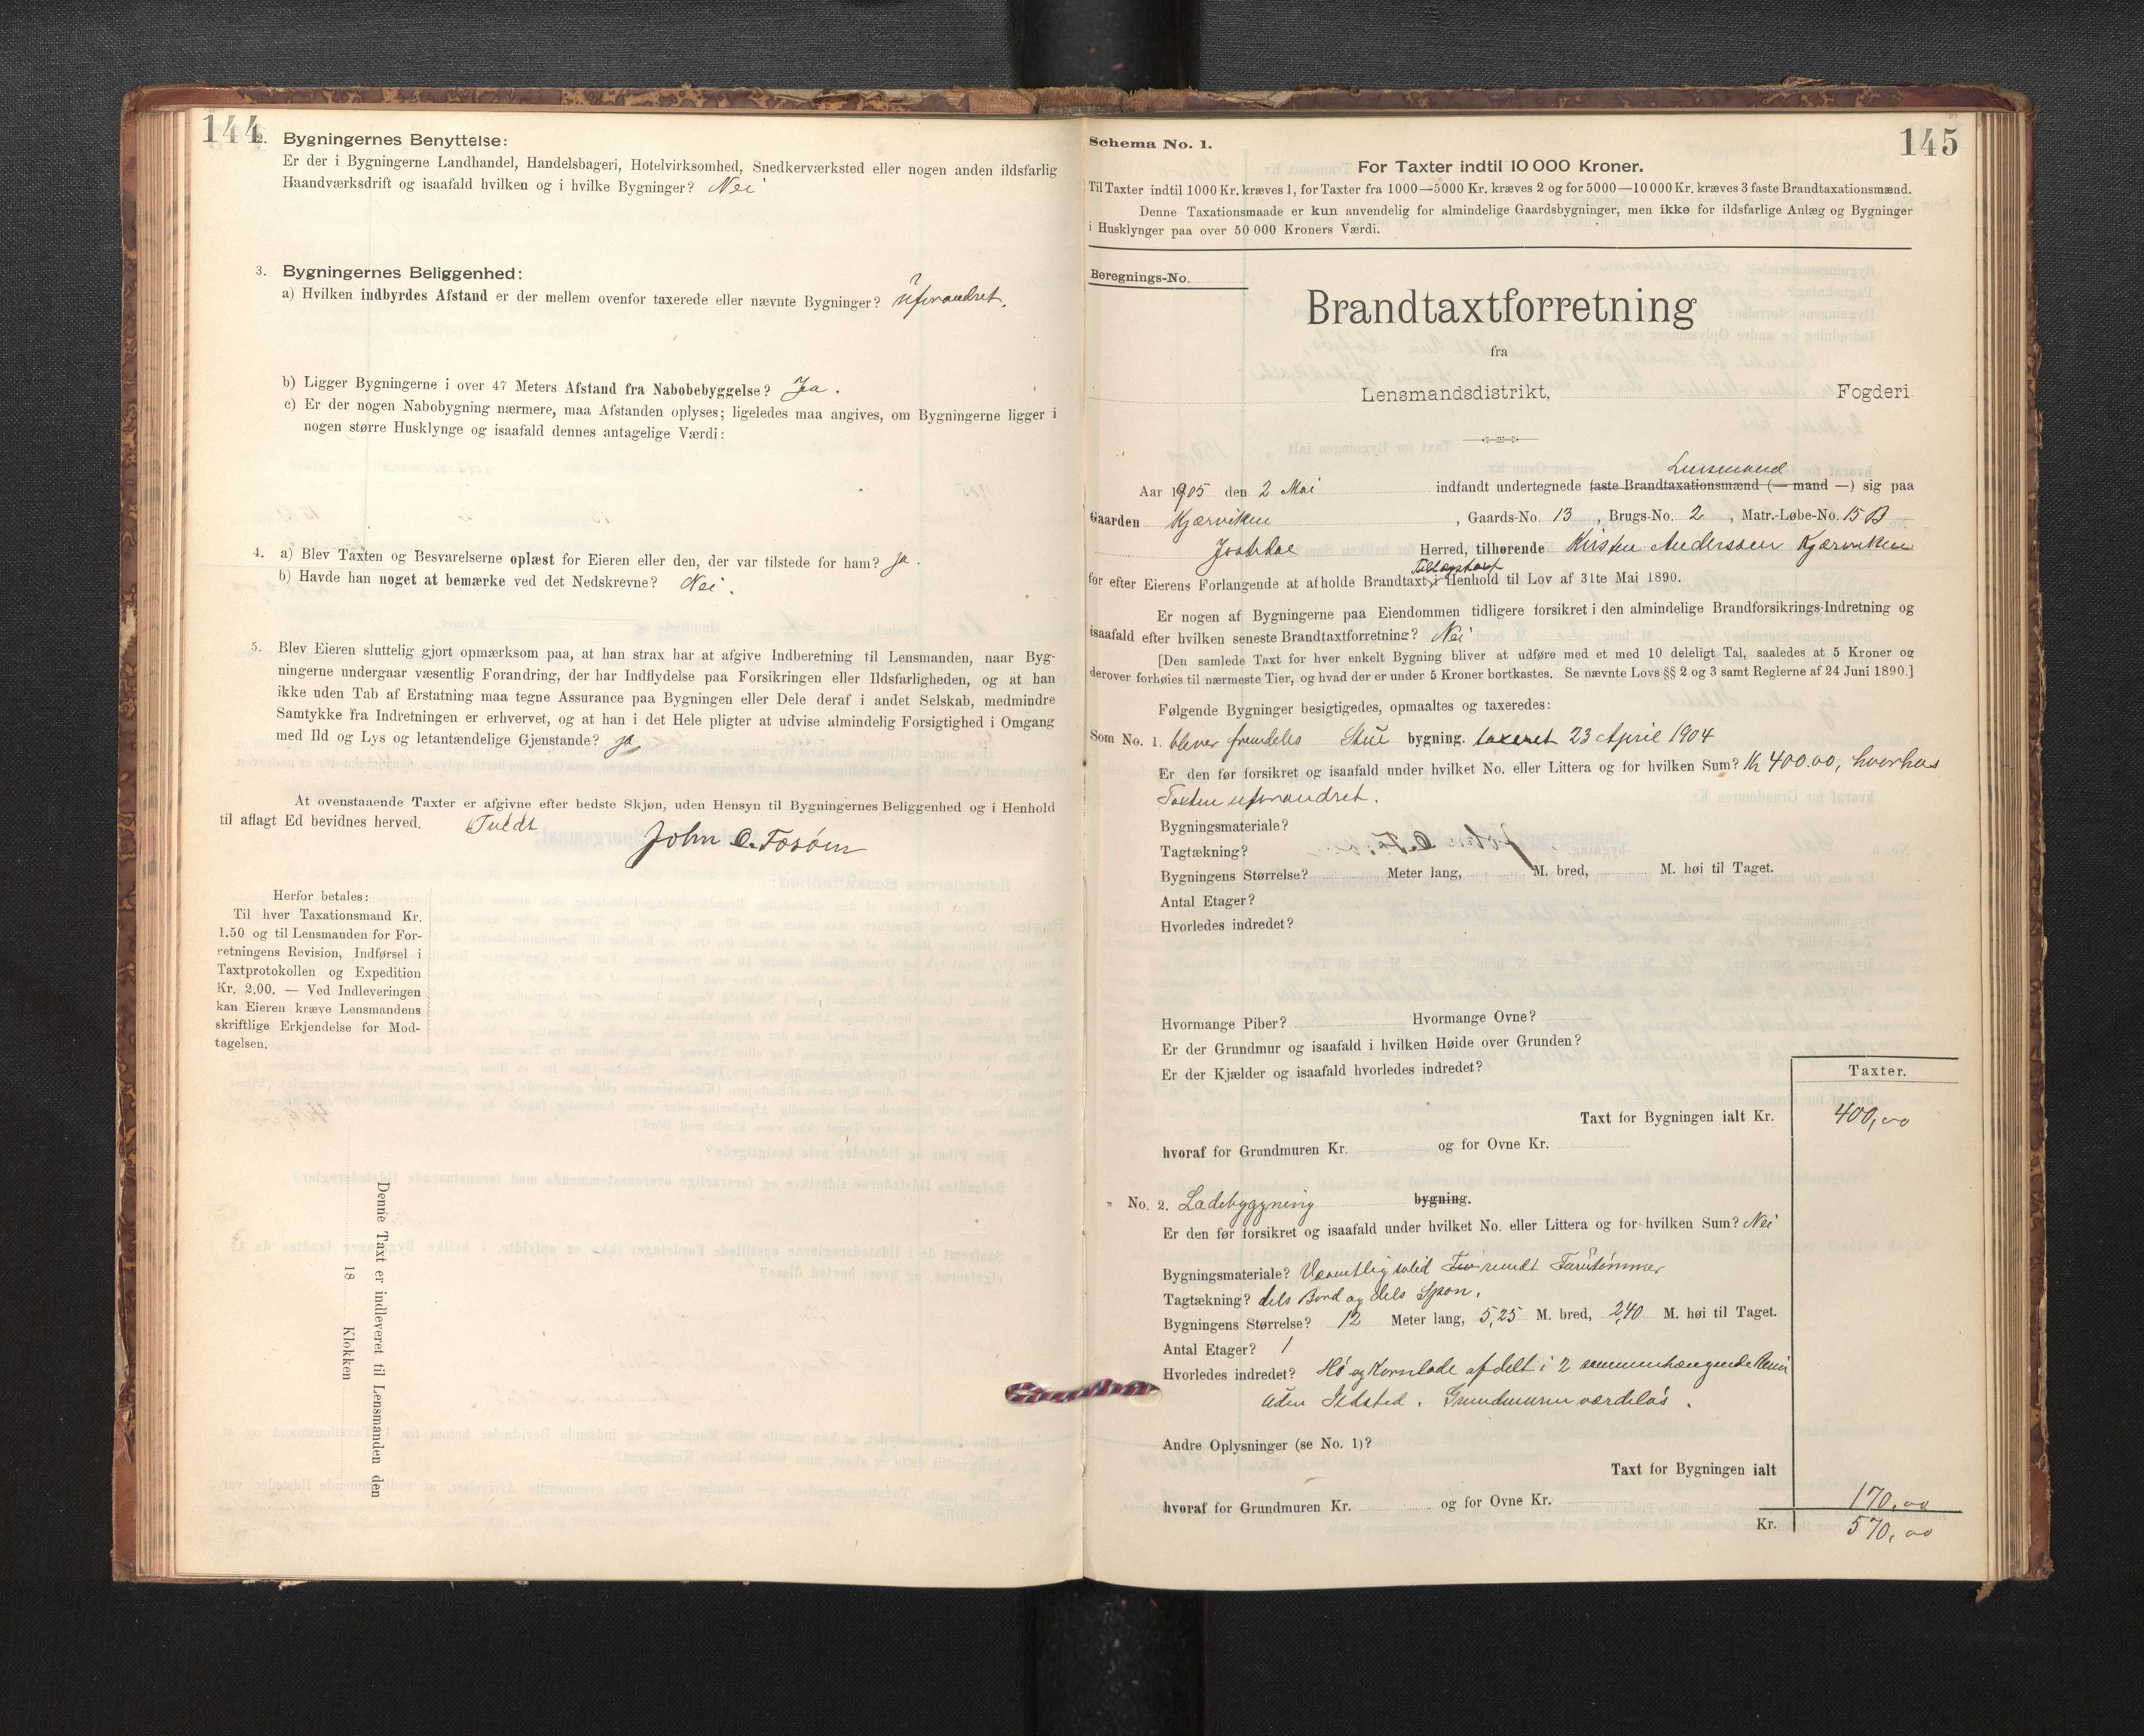 144
2. Bygningernes Benyttelse:
Er der i Bygningerne Landhandel, Handelsbageri, Hotelvirksomhed, Snedkerværksted eller nogen anden ildsfarlig
Haandværksdrift og isaafald hvilken og i hvilke Bygninger? Nei
3. Bygningernes Beliggenhed:
a) Hvilken indbyrdes Afstand er der mellem ovenfor taxerede eller nævnte Bygninger? Uforandret.
b) Ligger Bygningerne i over 47 Meters Afstand fra Nabobebyggelse? Ja.
c) Er der nogen Nabobygning nærmere, maa Afstanden oplyses; ligeledes maa angives, om Bygningerne ligger i
nogen større Husklynge og isaafald dennes antagelige Værdi:
4. a) Blev Taxten og Besvarelserne oplæst for Eieren eller den, der var tilstede for ham? Ja.
b) Havde han noget at bemærke ved det Nedskrevne? Nei.
5. Blev Eieren sluttelig gjort opmærksom paa, at han strax har at afgive Indberetning til Lensmanden, naar Byg-
ningerne undergaar væsentlig Forandring, der har Indflydelse paa Forsikringen eller Ildsfarligheden, og at han
ikke uden Tab af Erstatning maa tegne Assurance paa Bygningen eller Dele deraf i andet Selskab, medmindre
Samtykke fra Indretningen er erhvervet, og at han i det Hele pligter at udvise almindelig Forsigtighed i Omgang
med Ild og Lys og letantændelige Gjenstande? Ja
At ovenstaaende Taxter er afgivne efter bedste Skjøn, uden Hensyn til Bygningernes Beliggenhed og i Henhold
til aflagt Ed bevidnes herved.
John O.
Herfor betales:
Til hver Taxationsmand Kr.
1.50 og til Lensmanden for For-
retningens Revision, Indførsel i
Taxtprotokollen og Expedition
Kr. 2.00. — Ved Indleveringen
kan Eieren kræve Lensmandens
skriftlige Erkjendelse for Mod-
tagelsen.
Denne Taxt er indleveret til Lensmanden den
18 Klokken
145
Schema No. 1.
For Taxter indtil 10 000 Kroner.
Til Taxter indtil 1000 Kr. kræves 1, for Taxter fra 1000—5000 Kr. kræves 2 og for 5000—10 000 Kr. kræves 3 faste Brandtaxationsmænd.
Denne Taxationsmaade er kun anvendelig for almindelige Gaardsbygninger, men ikke for ildsfarlige Anlæg og Bygninger
i Husklynger paa over 50 000 Kroners Værdi.
Beregnings-No.
Brandtaxtforretning
fra
Lensmandsdistrikt, Fogderi
Lensmand
Aar 1905 den 2 Mai indfandt undertegnede faste Brandtaxationsmænd (— mand —) sig paa
Gaarden Kjærviken, Gaards-No. 13, Brugs-No. 2, Matr.-Løbe-No. 15 B
Jostedal Herred, tilhørende Kristen Anderssen Kjærviken
Tillægstaxt
for efter Eierens Forlangende at afholde Brandtaxt i Henhold til Lov af 31te Mai 1890.
Er nogen af Bygningerne paa Eiendommen tidligere forsikret i den almindelige Brandforsikrings-Indretning og
isaafald efter hvilken seneste Brandtaxtforretning? Nei
[Den samlede Taxt for hver enkelt Bygning bliver at udføre med et med 10 deleligt Tal, saaledes at 5 Kroner og
derover forhøies til nærmeste Tier, og hvad der er under 5 Kroner bortkastes. Se nævnte Lovs §§ 2 og 3 samt Reglerne af 24 Juni 1890.]
Følgende Bygninger besigtigedes, opmaaltes og taxeredes:
Som No. 1. blever fremdeles Stue bygning. taxeret 23 April 1904
Er den før forsikret og isaafald under hvilket No. eller Littera og for hvilken Sum? Kr 400.00, hvorhos
Taxten uforandret.
Bygningsmateriale?
Tagtækning?
Bygningens Størrelse? Meter lang, M. bred, M. høi til Taget.
Antal Etager?
Hvorledes indredet?
Hvormange Piber? Hvormange Ovne?
Er der Grundmur og isaafald i hvilken Høide over Grunden?
Er der Kjælder og isaafald hvorledes indredet?
Taxter.
Taxt for Bygningen ialt Kr. 400,00
hvoraf for Grundmuren Kr. og for Ovne Kr.
" No. 2. Ladebyggning bygning.
Er den før forsikret og isaafald under hvilket No. eller Littera og for hvilken Sum? Nei
Bygningsmateriale? Væsentlig solid rundt Furutømmer
Tagtækning? dels Bord og dels Spon.
Bygningens Størrelse? 12 Meter lang, 5,25 M. bred, 2,40 M. høi til Taget.
Antal Etager? 1
Hvorledes indredet? Hø og Kornlade afdelt i 2 sammenhængende Rum
uden Ildsted. Grundmuren værdeløs.
Andre Oplysninger (se No. 1)?
Taxt for Bygningen ialt 170,00
hvoraf for Grundmuren Kr. og for Ovne Kr.
Kr. 570,00